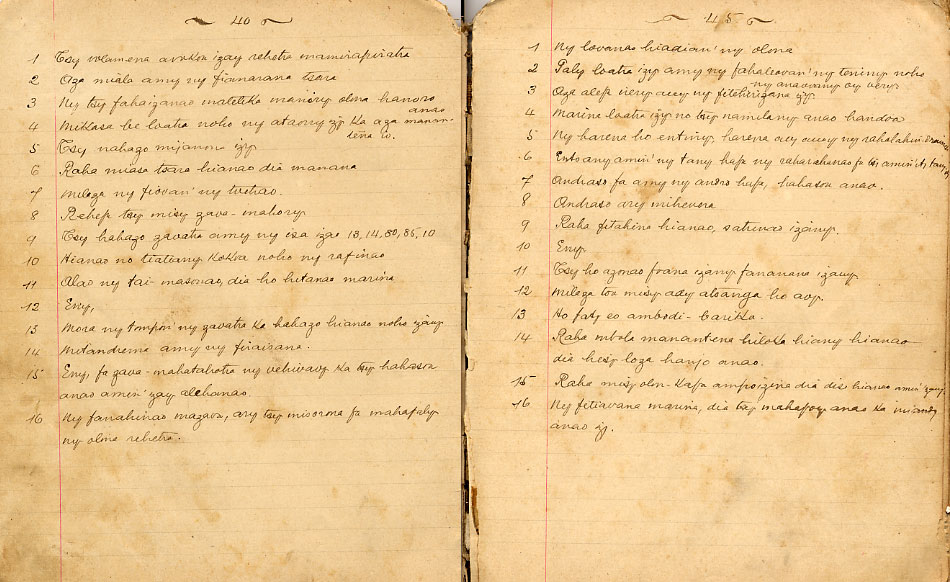 40
1 Tsy volamena avokoa izay rehetra mamirapiratra
2 Aza miala amy ny fianarana tsara
3 Ny tsy fahaizanao mateti ka manory olona hanoro
anao
4 Mikasa be loatra noho ny ataony izy ka aza manan-
tena io.
5 Tsy nahazo mijanona izy
6 Raha miasa tsara hianao dia manana
7 Miloza ny fiovan' ny
8 Rehefa tsy misy zava-mahory
9 Tsy hahazo zavatra amy ny isa izao 13, 14, 30, 85, 10
10 Hianao no tiatiany kokoa noho ny rafinao
11 Alao ny tai-masonao, dia ho hitanao marina
12 Eny,
13 Mora ny tompon' ny zavatra ka hahazo hianao noho izany
14 Mitandrema amy ny firaisana.
15 Eny, fa zava-mahatahotra ny vehivavy ka tsy hahasoa
anao amin' izay alehanao.
16 Ny fanahinao mazava, ary tsy misorona fa mahafaly
ny olona rehetra.
45
1 Ny lovanao hiadian' ny olona
2 Faly loatra izy amy ny fahaleovan' ny teniny noho
ny anaovany oy very
3 Aza alefa very amy ny izy.
4 Marina loatra izy no tsy namila ny anao handoa
5 Ny harena ho entiny, harena avy amy ny
6 Ento any amin' ny tany hafa ny raharahanao fa tsy amin' ity tany ity
7 Andraso fa amy ny andro hafa, hahasoa anao.
8 Andraso ary mihevera
9 Raha fitahina hianao, satrivao izany.
10 Eny.
11 Tsy ho azonao foana izany fananana izany
12 Miloza toa misy ady atsanga ho avy.
13 Ho faty eo ambodi-barika.
14 Raha mbola manantena hiloka hiany hianao
dia hisy loza hanjo anao.
15 Raha misy olon-kafa ampoizina dia diso hianao amin' izany
16 Ny fitiavana marina, dia tsy mahafoy anao ka miandry
anao izy.